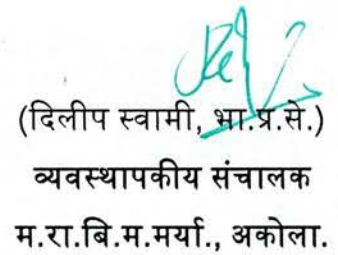 (दिलीप स्वामी, भा.प्र.से.)
व्यवस्थापकीय संचालक
म.रा.बि.म.मर्या., अकोला.